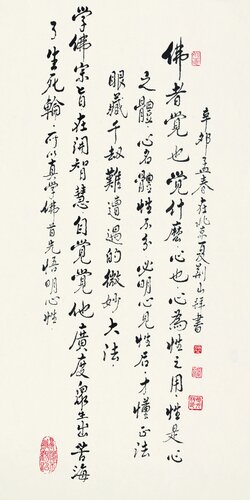 佛者覺也覺什麼心也心為性之用性是心
之體心名體性不分必明心見性后才懂正法
眼藏千劫難遭遇的微妙大法
學佛宗旨在開智慧自覺覺他廣度眾生出苦海
了生死輪所以真學佛首先悟明心性
辛卯孟春在北京夏荊山拜書